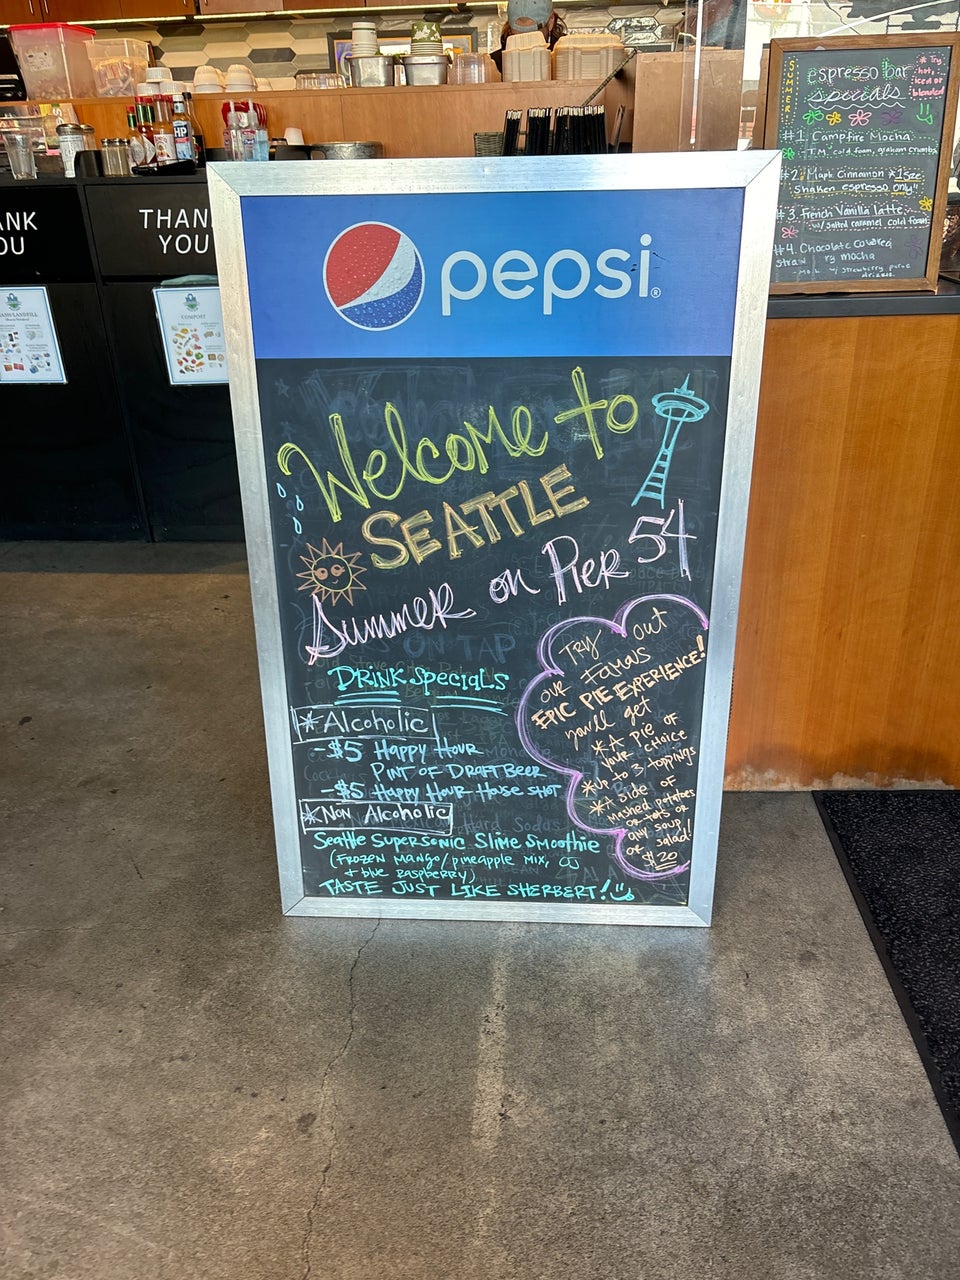 pepsi
Welcome to
SEATTLE
Summer on Pier 54
DRINK Specials
*Alcoholic
-$5 Happy Hour
PINT OF DRAFT BEER
-$5 Happy Hour House SHOT
*Non Alcoholic
Seattle Supersonic Slime Smoothie
(Frozen mango/pineapple mix,
+ blue raspberry)
TASTE JUST LIKE SHERBERT!
Try out
our Famous
EPIC PIE EXPERIENCE!
you'll get
*A PIE OF
YOUR CHOICE
*up to 3 toppings
*A side of
mashed potatoes
or tots or
any soup
or salad!
$20
espresso bar
specials
SUMMER
*Try
hot,
iced or
blended
#1 Campfire Mocha
T.M. cold foam, graham crumbs
#2. Maple Cinnamon *1 size
shaken espresso only"
#3. French Vanilla latte
w/ salted caramel cold foam
#4. Chocolate Covered
mocha
w/ strawberry puree
THANK
YOU
ANK
OU
COMPOST
HP